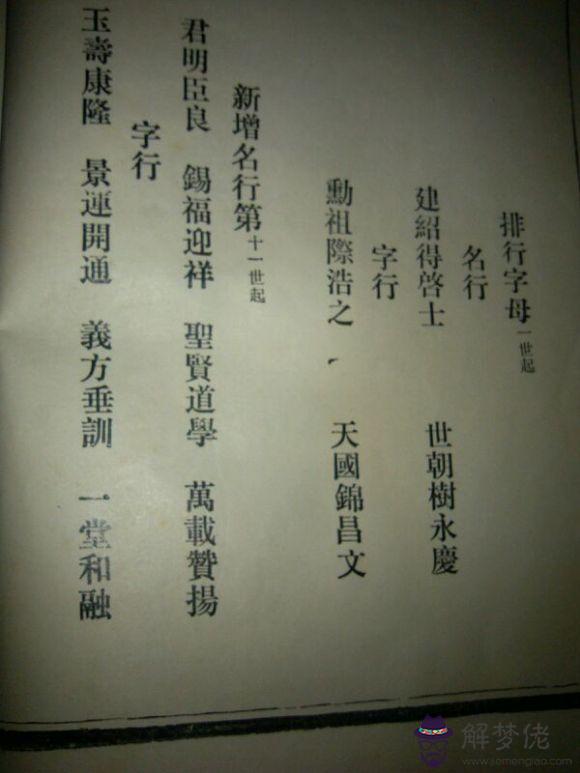 排行字母一世起
名行
建紹得啓士 世朝樹永慶
字行
勳祖際浩之 天國錦昌文
新增名行第十一世起
君明臣良 錫福迎祥 聖賢道學 萬載贊揚
字行
玉壽康隆 景運開通 義方垂訓 一堂和融
解梦佬
www.jiemenglao.com